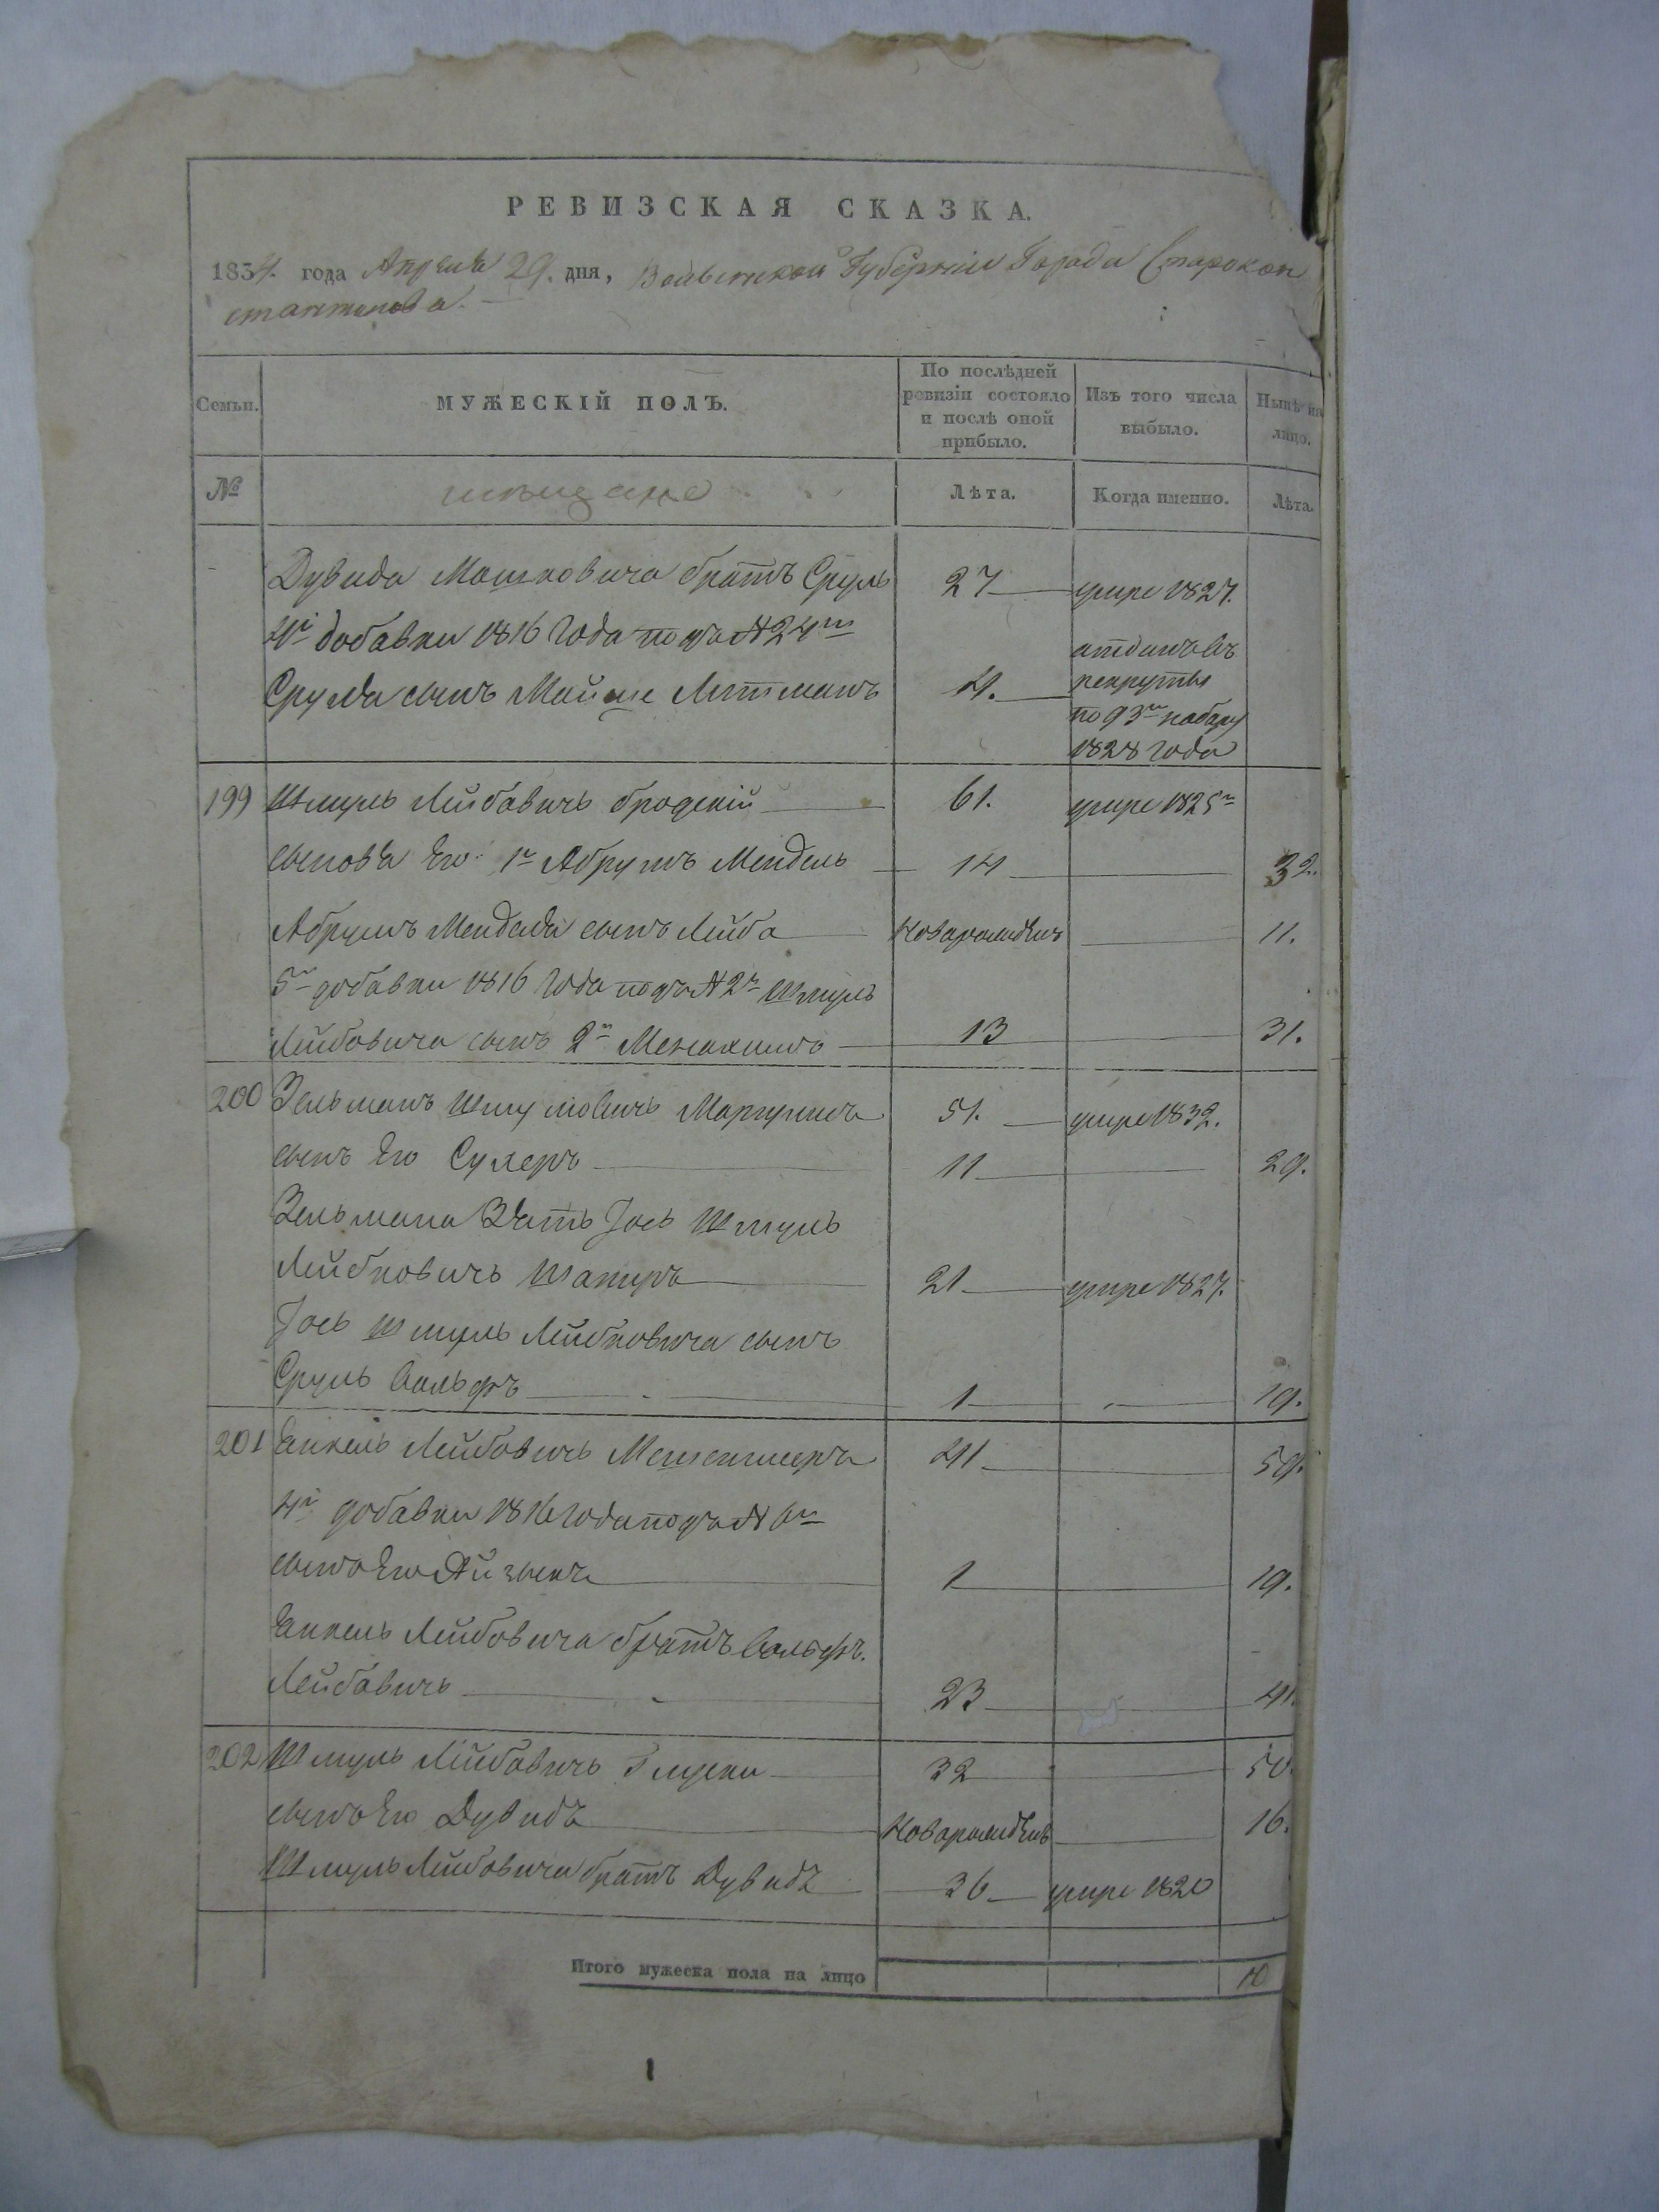 РЕВИЗСКАЯ СКАЗКА.
1834. года Апреля 29. дня, Волынской Губерніи Города Старокон
стантинова. —
Семьи.
МУЖЕСКІЙ ПОЛЪ.
По послѣдней
ревизіи состояло
и послѣ оной
прибыло.
Изъ того числа
выбыло.
Нынѣ на
лицо.
№
мещане
Лѣта.
Когда именно.
Лѣта.
Дувида Мошковича братъ Сруль 27 умре 1827.
4й добавки 1816 года подъ №24м
Сруля сынъ Мойше 4. отданъ въ
рекруты
по 93м набору
1828 года
199 Шмуль Лейбовичъ Бродскій 61. умре 1825
сыновя Его 1й Абрумъ Мендель 14 32.
Абрумъ Менделя сынъ Лейба Новорожденъ 11.
5й добавки 1816 года подъ №2м Шмуль
Лейбовича сынъ 2й Менахимъ 13 31.
200 Зельманъ Шмулювичъ 51. умре 1832.
сынъ Его Сухеръ 11 29.
Зельмана Зять Іось Шмуль
Лейбковичъ 21 умре 1827.
Іось Шмуль Лейбковича сынъ
Сруль Вольфъ 1 19.
201 Янкель Лейбовичъ 41 59.
4й добавки 1816 года подъ № 6м
сынъ Его Айзыкъ 1 19.
Янкель Лейбовича братъ Вольфъ.
Лейбовичъ 23 41.
202 Шмуль Лейбовичъ 32 50.
сынъ Его Дувидъ Новорожденъ 16.
Шмуль Лейбовича братъ Дувидъ 36 умре 1820
Итого мужеска пола на лицо 10